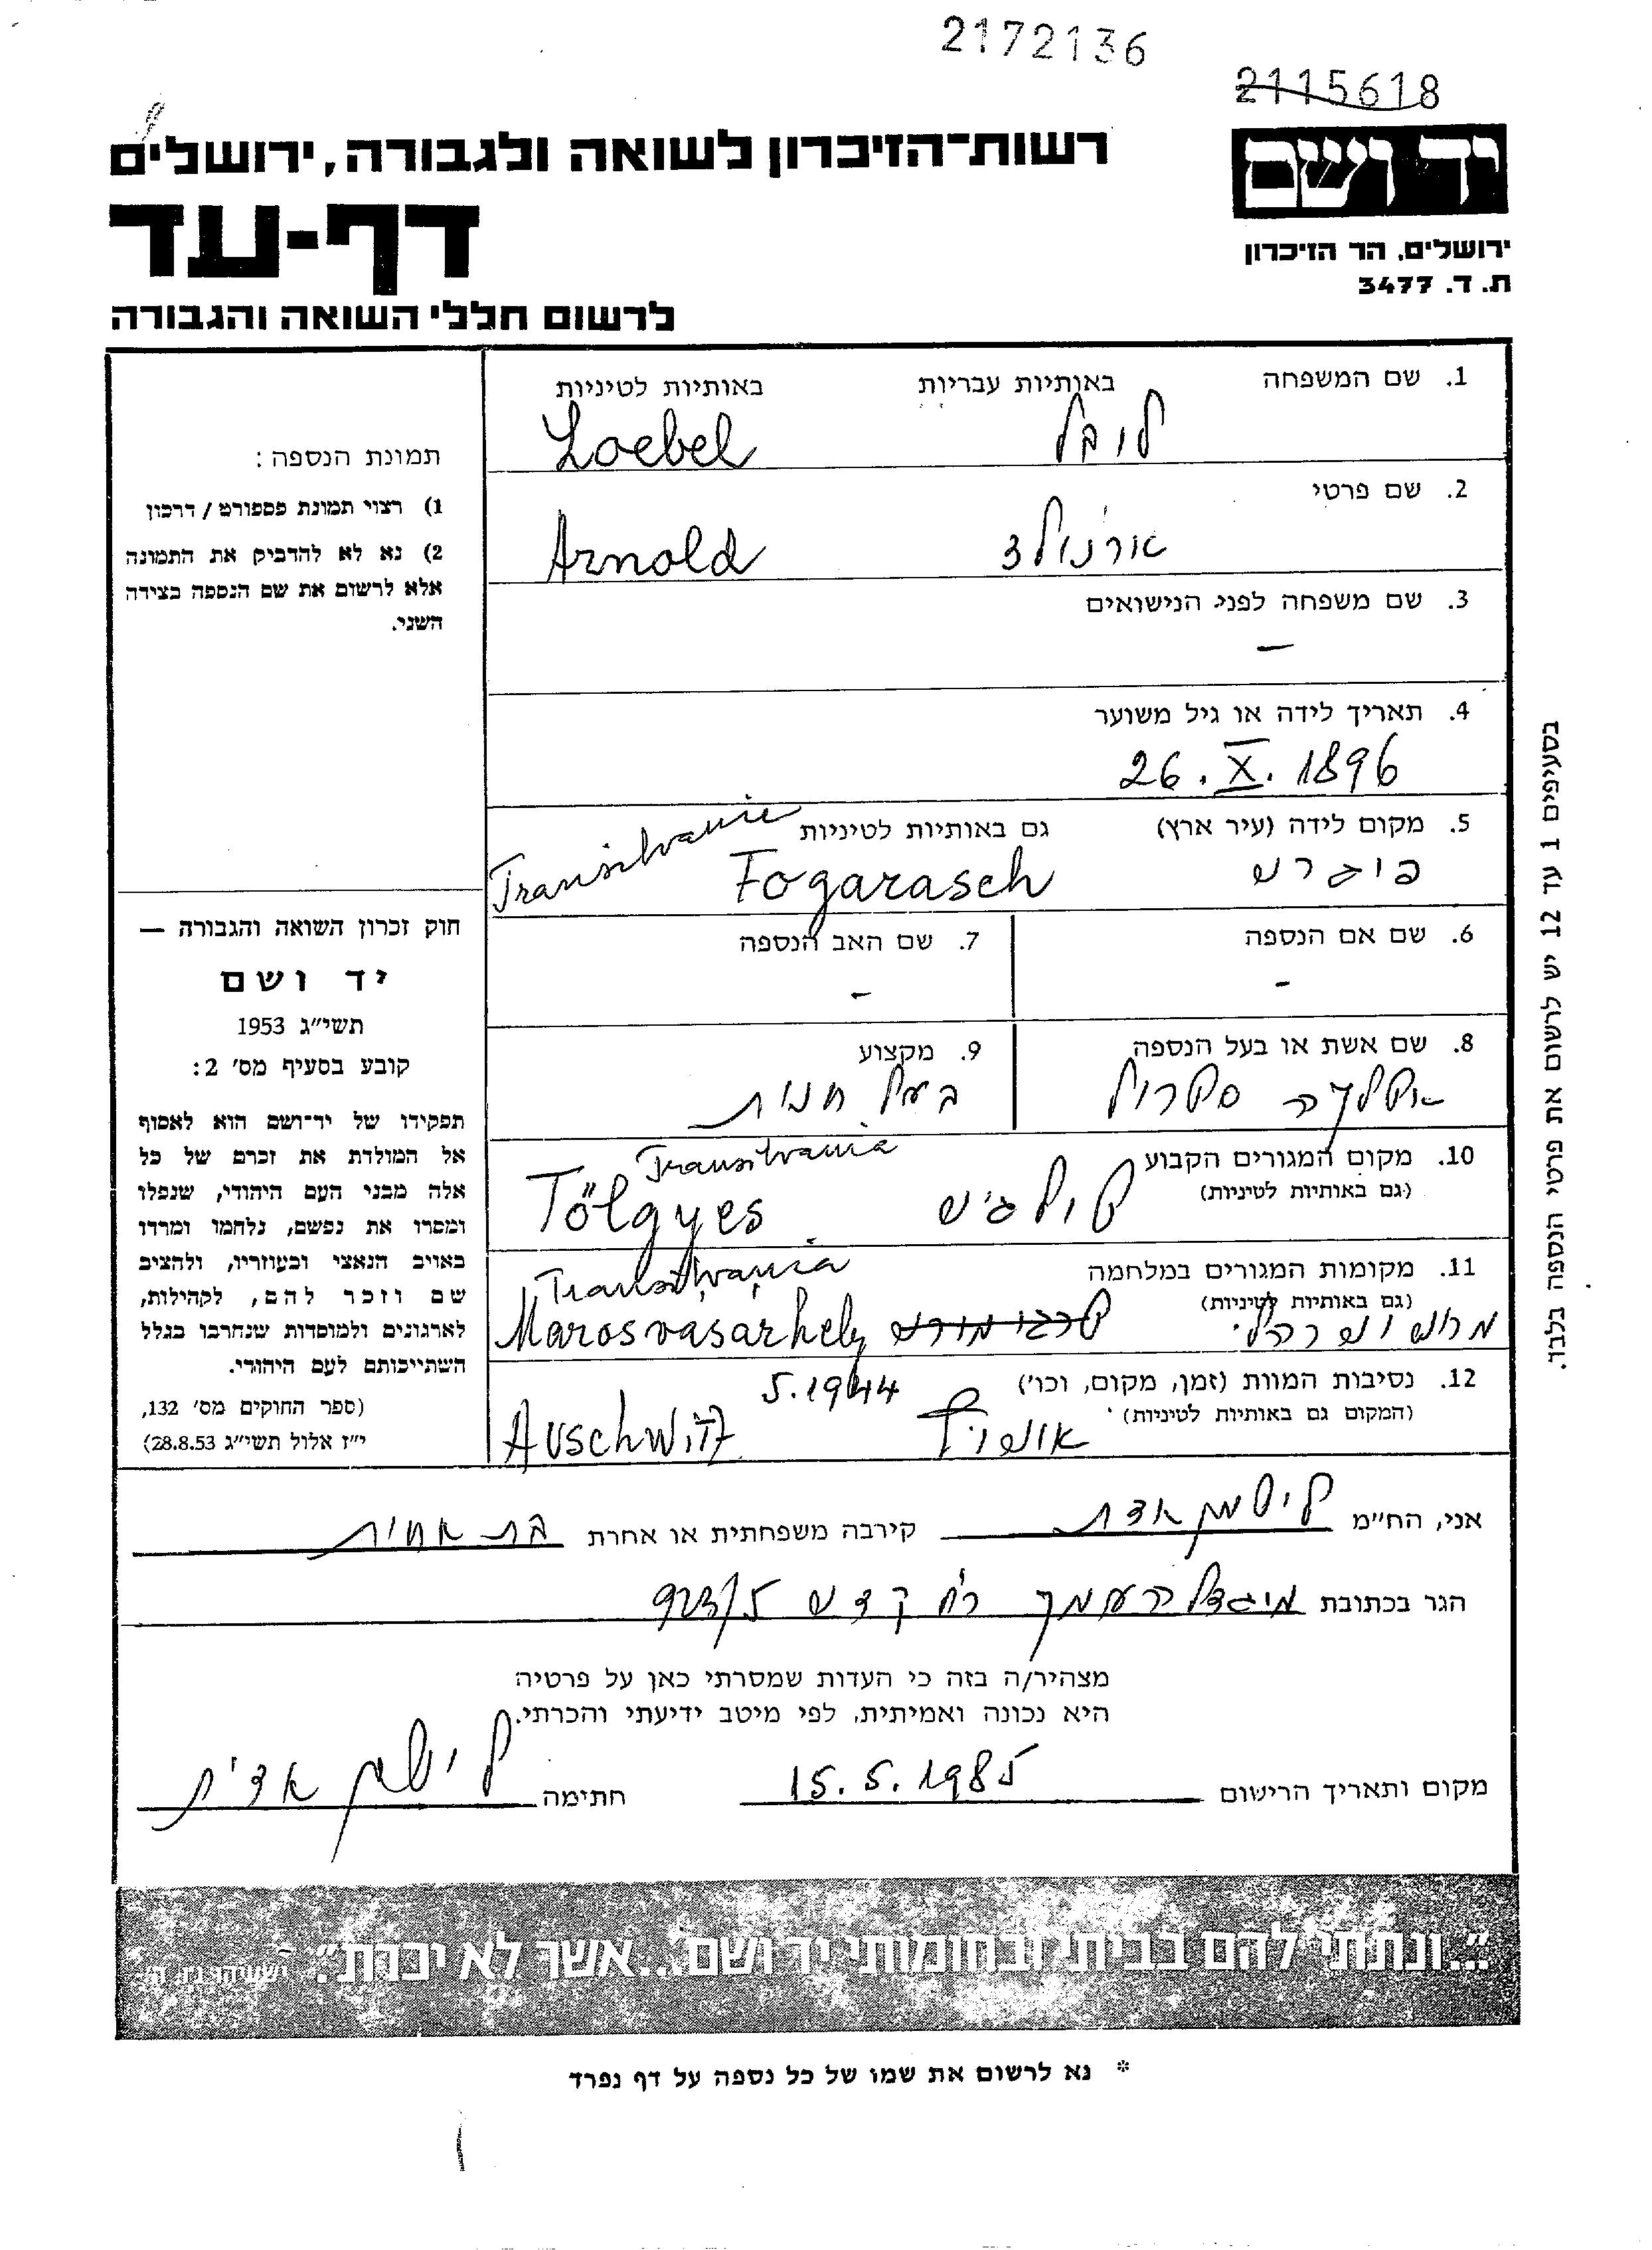 2172136
2115618
יד ושם
רשות־הזיכרון לשואה ולגבורה, ירושלים
דף-עד
לרשום חללי השואה והגבורה
ירושלים, הר הזיכרון
ת. ד. 3477
1. שם המשפחה באותיות עבריות באותיות לטיניות
לובל Loebel
2. שם פרטי
ארנולד Arnold
3. שם משפחה לפני הנישואים
–
4. תאריך לידה או גיל משוער
26. X. 1896
5. מקום לידה (עיר ארץ) גם באותיות לטיניות
פוגרש Fogarasch Transilvanie
6. שם אם הנספה
-
7. שם האב הנספה
-
8. שם אשת או בעל הנספה
9. מקצוע
בעל חנות
10. מקום המגורים הקבוע
(גם באותיות לטיניות)
Transilvania
טולג'ש Tölgyes
11. מקומות המגורים במלחמה
(גם באותיות לטיניות)
Transilvania
מרוש ושרהלי טרגו מורש Marosvasarhely
12. נסיבות המוות (זמן, מקום, וכו')
(המקום גם באותיות לטיניות)
5.1944
אושויץ Auschwitz
תמונת הנספה:
1) רצוי תמונת פספורט / דרכון
2) נא לא להדביק את התמונה
אלא לרשום את שם הנספה בצידה
השני.
חוק זכרון השואה והגבורה —
יד ושם
תשי״ג 1953
קובע בסעיף מס' 2:
תפקידו של יד־ושם הוא לאסוף
אל המולדת את זכרם של כל
אלה מבני העם היהודי, שנפלו
ומסרו את נפשם, נלחמו ומרדו
באויב הנאצי ובעוזריו, ולהציב
שם וזכר להם, לקהילות,
לארגונים ולמוסדות שנחרבו בגלל
השתייכותם לעם היהודי.
(ספר החוקים מס' 132,
י״ז אלול תשי״ג 28.8.53)
בסעיפים 1 עד 12 יש לרשום את פרטי הנספה בלבד.
אני, הח״מ ליטמן אדית קירבה משפחתית או אחרת בת אחות
הגר בכתובת מיגדל העמק רח קדש
מצהיר/ה בזה כי העדות שמסרתי כאן על פרטיה
היא נכונה ואמיתית, לפי מיטב ידיעתי והכרתי.
מקום ותאריך הרישום 15.5.1985 חתימה ליטמן אדית
"...ונתתי להם בביתי ובחומותי יד ושם...אשר לא יכרת". ישעיהו נו, ה'
* נא לרשום את שמו של כל נספה על דף נפרד